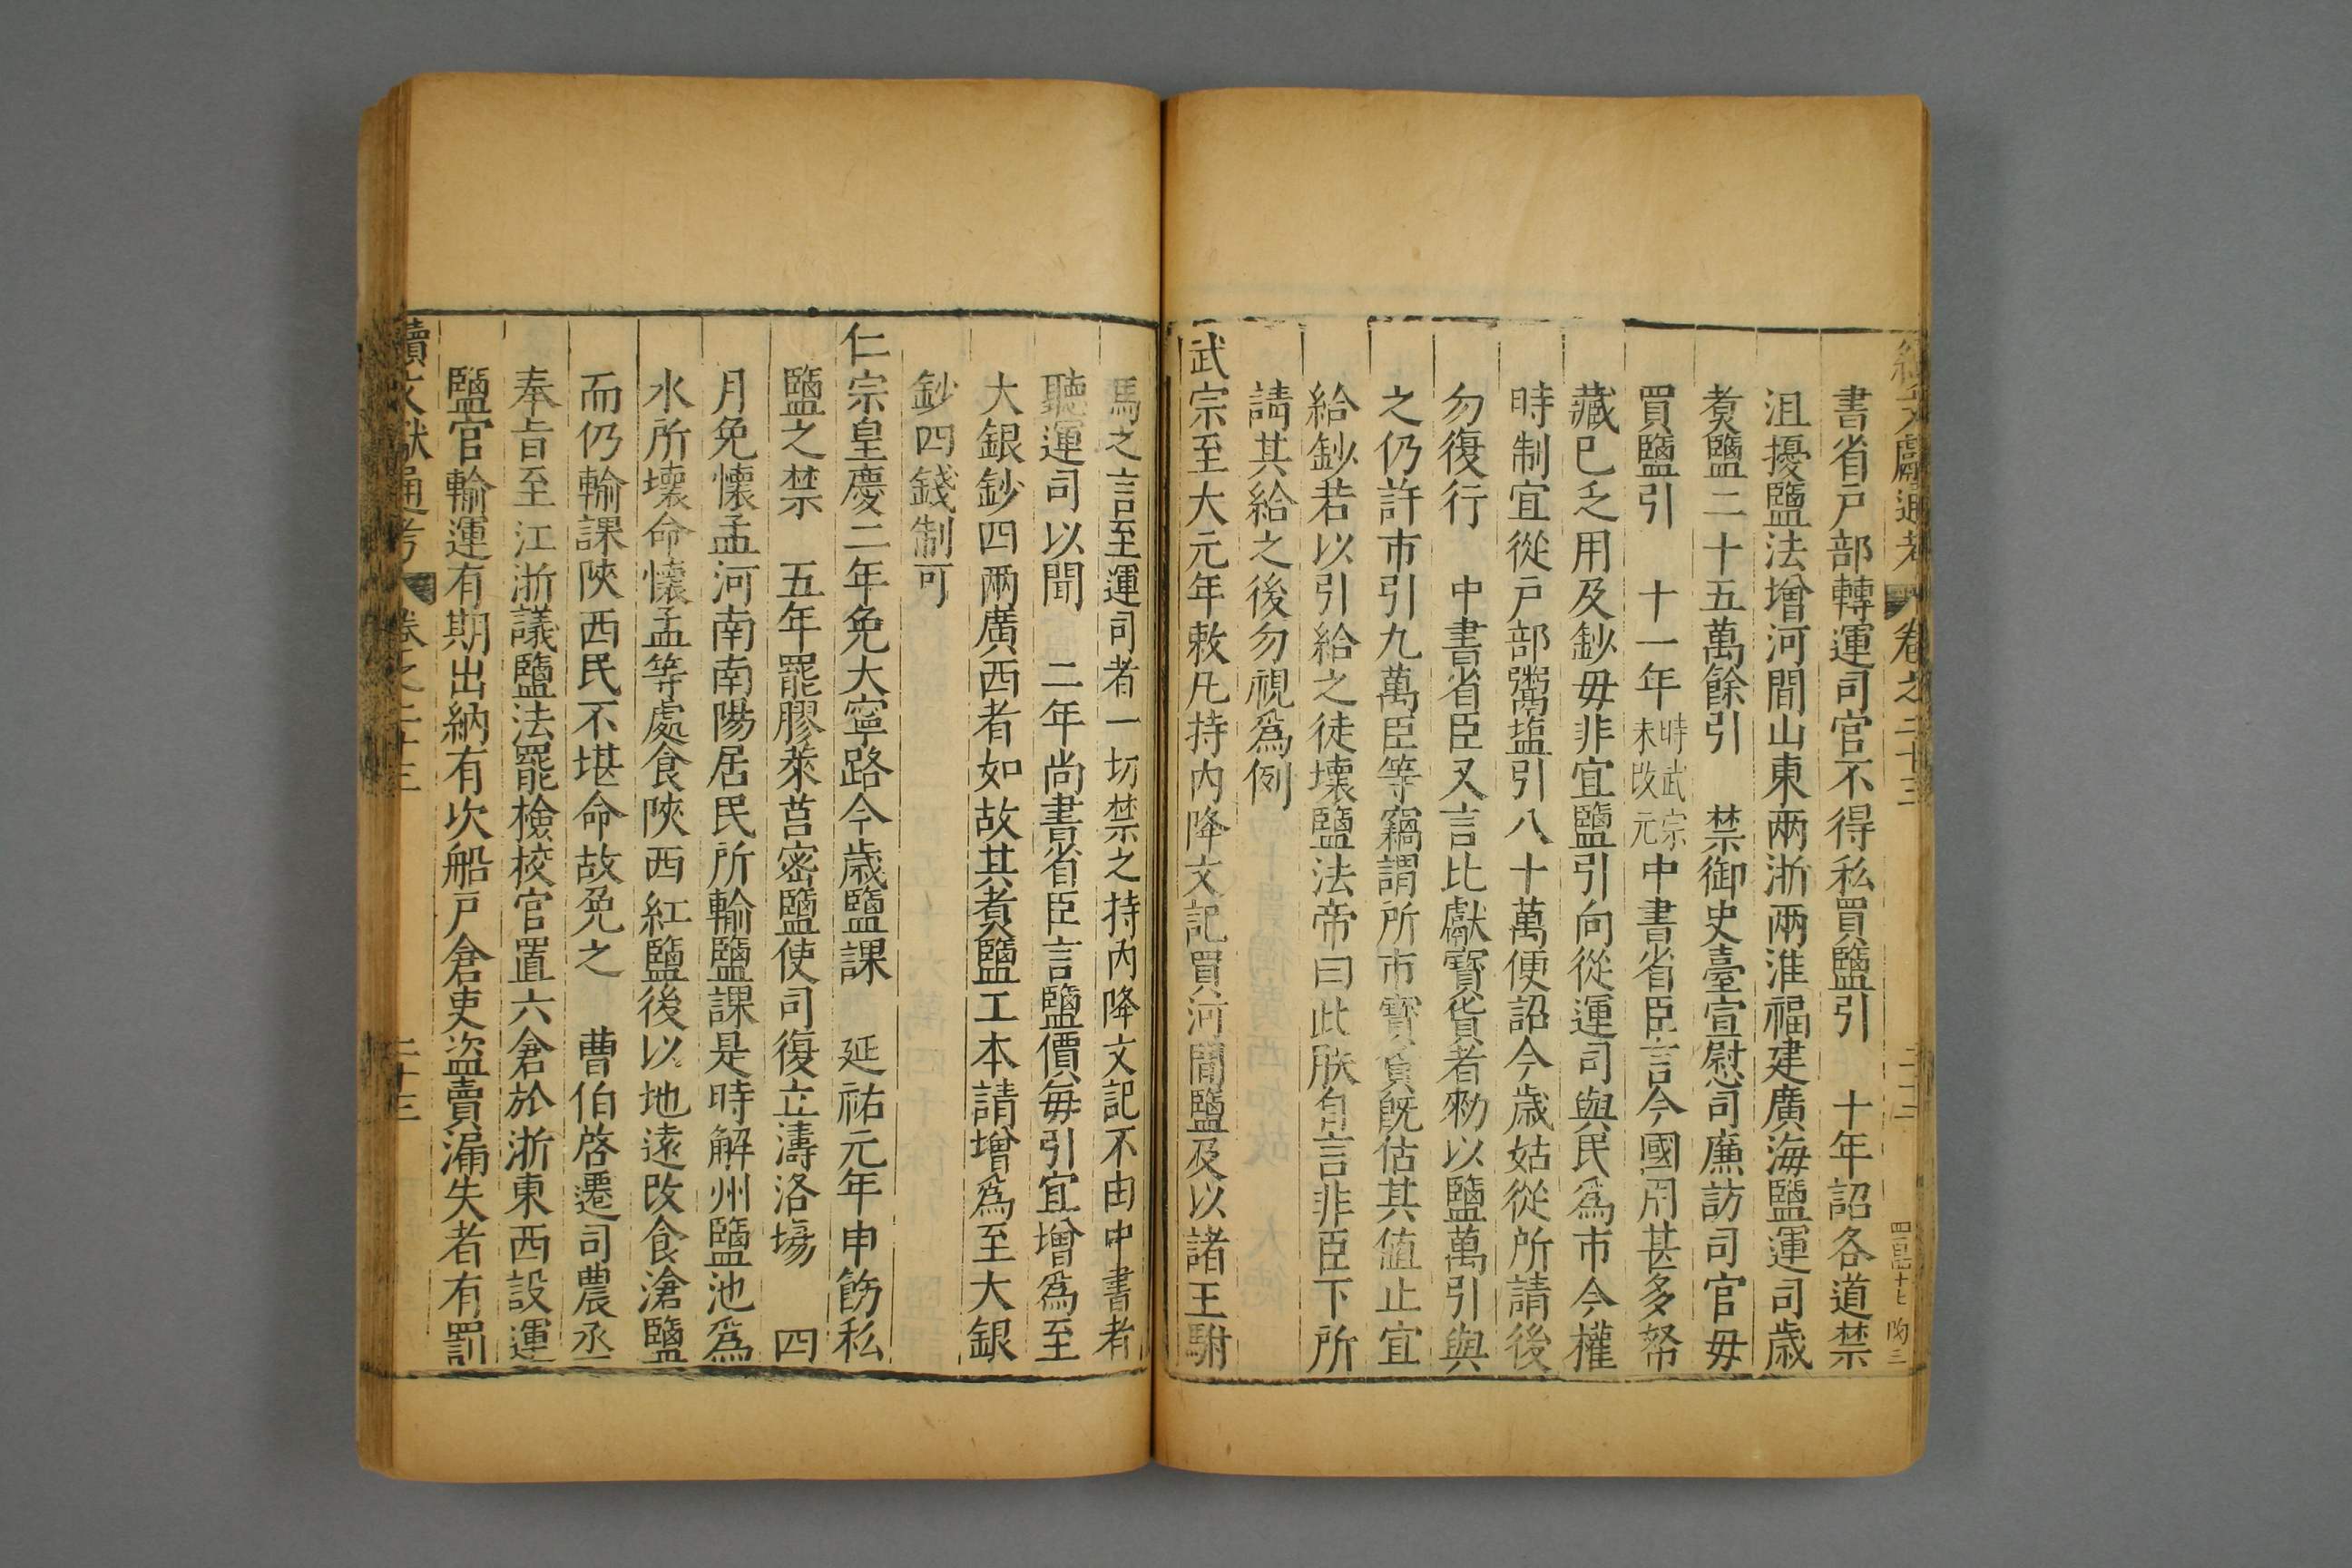 續文獻通考 卷之二十三 二十二 四百四十七
書省戸部轉運司官不得私買鹽引　十年詔各道禁
沮擾鹽法增河間山東兩浙兩淮福建廣海鹽運司歲
煑鹽二十五萬餘引　禁御史臺宣慰司廉訪司官毋
買鹽引　十一年時武宗未改元中書省臣言今國用甚多帑
藏已乏用及鈔母非宜鹽引向從運司與民爲市今權
時制宜從戸部鬻塩引八十萬便詔今歲姑從所請後
勿復行　中書省臣又言比獻寳貨者勑以鹽萬引與
之仍許市引九萬臣等竊謂所市寳貨既估其值止宜
給鈔若以引給之徒壊鹽法帝曰此朕自言非臣下所
請其給之後勿視爲例
武宗至大元年敕凡持内降文記買河間鹽及以諸王駙
馬之言至運司者一切禁之持内降文記不由中書者
聽運司以聞　二年尚書省臣言鹽價每引宜增爲至
大銀鈔四兩廣西者如故其煑鹽工本請增爲至大銀
鈔四錢制可
仁宗皇慶二年免大寧路今歲鹽課　延祐元年申飭私
鹽之禁　五年罷膠萊莒密鹽使司復立濤洛塲　四
月免懷孟河南南陽居民所輸鹽課是時解州鹽池爲
水所壊命懷孟等處食陜西紅鹽後以地遠改食滄鹽
而仍輸課陜西民不堪命故免之　曹伯啓遷司農丞
奉旨至江浙議鹽法罷檢校官置六倉於浙東西設運
鹽官輸運有期出納有次船戸倉吏盜賣漏失者有罰
續文獻通考 卷之二十三 二十三